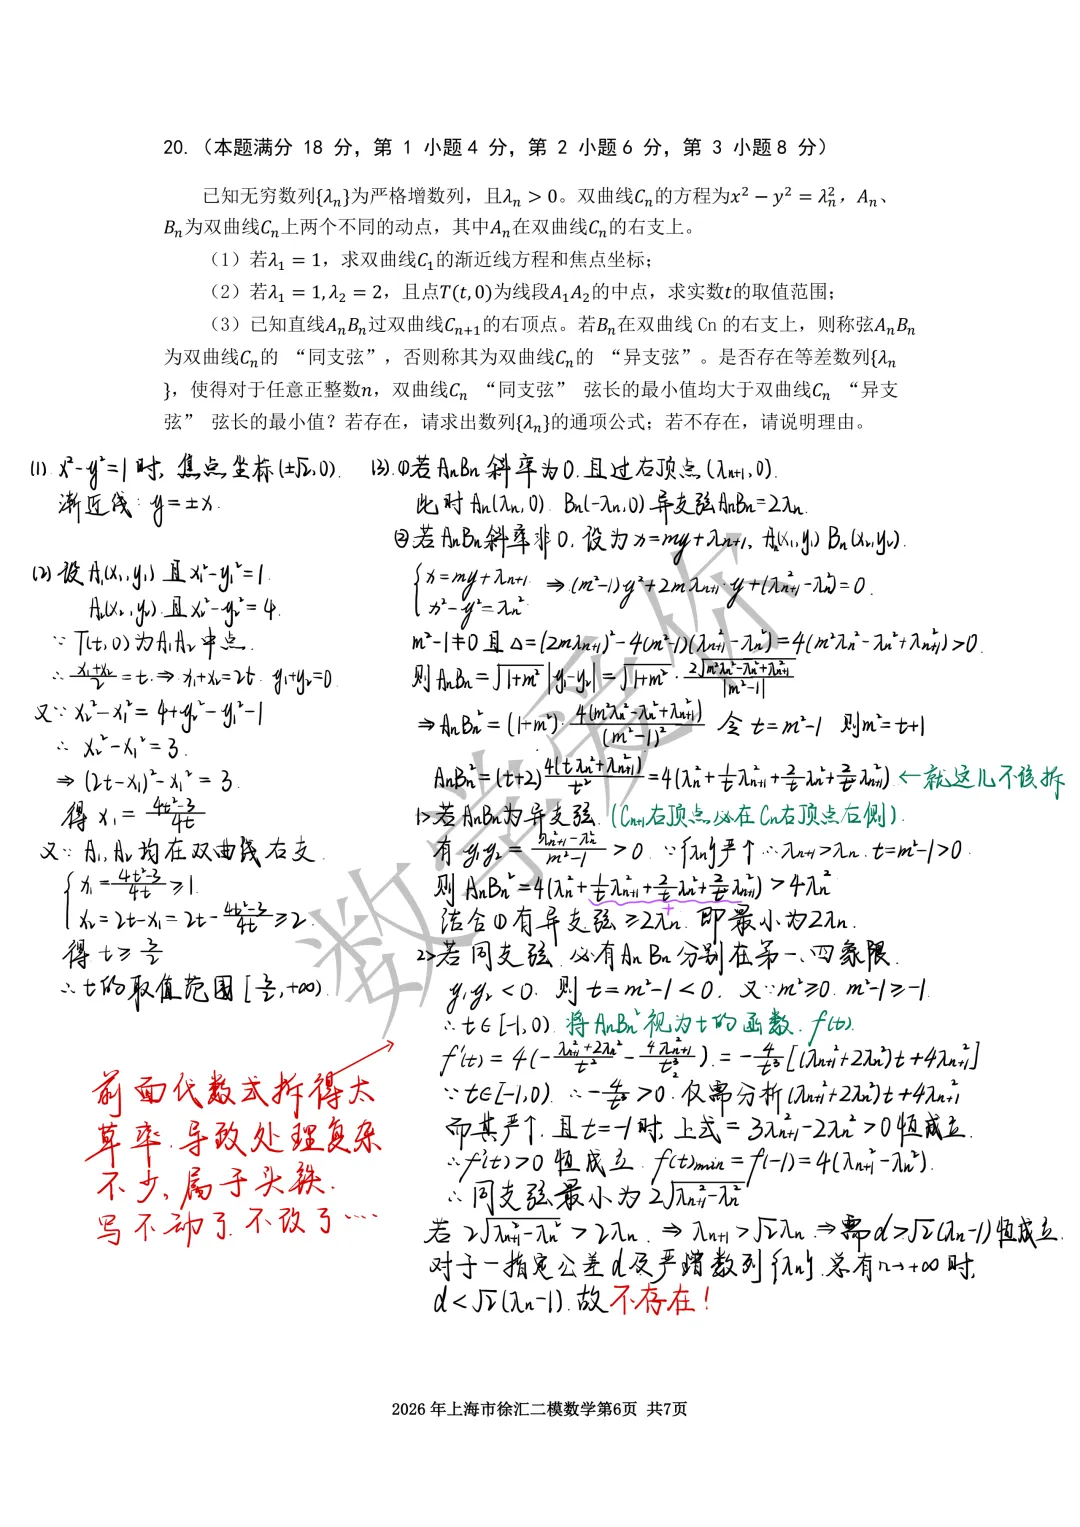 20.（本题满分 18 分，第 1 小题 4 分，第 2 小题 6 分，第 3 小题 8 分）
已知无穷数列{λₙ}为严格增数列，且λₙ > 0。双曲线Cₙ的方程为x² − y² = λₙ²，Aₙ、
Bₙ为双曲线Cₙ上两个不同的动点，其中Aₙ在双曲线Cₙ的右支上。
（1）若λ₁ = 1，求双曲线C₁的渐近线方程和焦点坐标；
（2）若λ₁ = 1, λ₂ = 2，且点T(t, 0)为线段A₁A₂的中点，求实数t的取值范围；
（3）已知直线AₙBₙ过双曲线Cₙ₊₁的右顶点。若Bₙ在双曲线 Cn 的右支上，则称弦AₙBₙ
为双曲线Cₙ的 “同支弦”，否则称其为双曲线Cₙ的 “异支弦”。是否存在等差数列{λₙ
}，使得对于任意正整数n，双曲线Cₙ “同支弦” 弦长的最小值均大于双曲线Cₙ “异支
弦” 弦长的最小值？若存在，请求出数列{λₙ}的通项公式；若不存在，请说明理由。
(1). x²-y²=1时, 焦点坐标(±√2,0).
渐近线: y=±x.
(2) 设A₁(x₁,y₁) 且x₁²-y₁²=1.
A₂(x₂,y₂) 且x₂²-y₂²=4.
∵ T(t,0)为A₁A₂中点.
∴ (x₁+x₂)/2=t ⇒ x₁+x₂=2t. y₁+y₂=0
又∵ x₂²-x₁²=4+y₂²-y₁²-1
∴ x₂²-x₁²=3.
⇒ (2t-x₁)²-x₁²=3
得 x₁=(4t²-3)/4t
又∵ A₁,A₂均在双曲线右支.
{ x₁=(4t²-3)/4t≥1.
x₂=2t-x₁=2t-(4t²-3)/4t≥2.
得 t≥3/2
∴ t的取值范围[3/2,+∞).
(3).①若AnBn斜率为0. 且过右顶点(λn+1,0).
此时An(λn,0). Bn(-λn,0) 异支弦AnBn=2λn.
②若AnBn斜率非0. 设为x=my+λn+1, An(x₁,y₁) Bn(x₂,y₂).
{ x=my+λn+1
x²-y²=λn² ⇒ (m²-1)y²+2mλn+1·y+(λn+1²-λn²)=0.
m²-1≠0且Δ=(2mλn+1)²-4(m²-1)(λn+1²-λn²)=4(m²λn²-λn²+λn+1²)>0.
则AnBn=√(1+m²)|y₁-y₂|=√(1+m²)·2√(m²λn²-λn²+λn+1²)/|m²-1|
⇒AnBn²=(1+m²)·4(m²λn²-λn²+λn+1²)/(m²-1)² 令 t=m²-1 则m²=t+1
AnBn²=(t+2)4(tλn²+λn+1²)/t²=4(λn²+1/t λn+1²+2/t λn²+2/t² λn+1²) ←就这儿不该拆
1>若AnBn为异支弦. (Cn+1右顶点必在Cn右顶点右侧).
有y₁y₂=(λn+1²-λn²)/(m²-1)>0. ∵{λn}严↑ ∴λn+1>λn. t=m²-1>0.
则AnBn²=4(λn²+1/t λn+1²+2/t λn²+2/t² λn+1²)>4λn²
+
结合①有异支弦≥2λn. 即最小为2λn.
2>若同支弦. 必有An Bn分别在第一、四象限.
y₁y₂<0. 则t=m²-1<0. 又∵m²≥0. m²-1≥-1.
∴t∈[-1,0). 将AnBn²视为t的函数. f(t).
f'(t)=4(-(λn+1²+2λn²)/t²-4λn+1²/t³).=-4/t³[(λn+1²+2λn²)t+4λn+1²]
∵t∈[-1,0). ∴-4/t³>0. 仅需分析(λn+1²+2λn²)t+4λn+1²
而其严↑. 且t=-1时, 上式=3λn+1²-2λn²>0恒成立.
∴f'(t)>0恒成立. f(t)min=f(-1)=4(λn+1²-λn²).
∴同支弦最小为2√(λn+1²-λn²)
若2√(λn+1²-λn²)>2λn. ⇒λn+1>√2λn. ⇒需d>√2(λn-1)恒成立.
对于一指定公差d及严增数列{λn}. 总有n→+∞时,
d<√2(λn-1). 故不存在!
前面代数式拆得太
草率. 导致处理复杂
不少, 属于头铁.
写不动了. 不改了....
数学爱你
2026 年上海市徐汇二模数学第6页 共7页